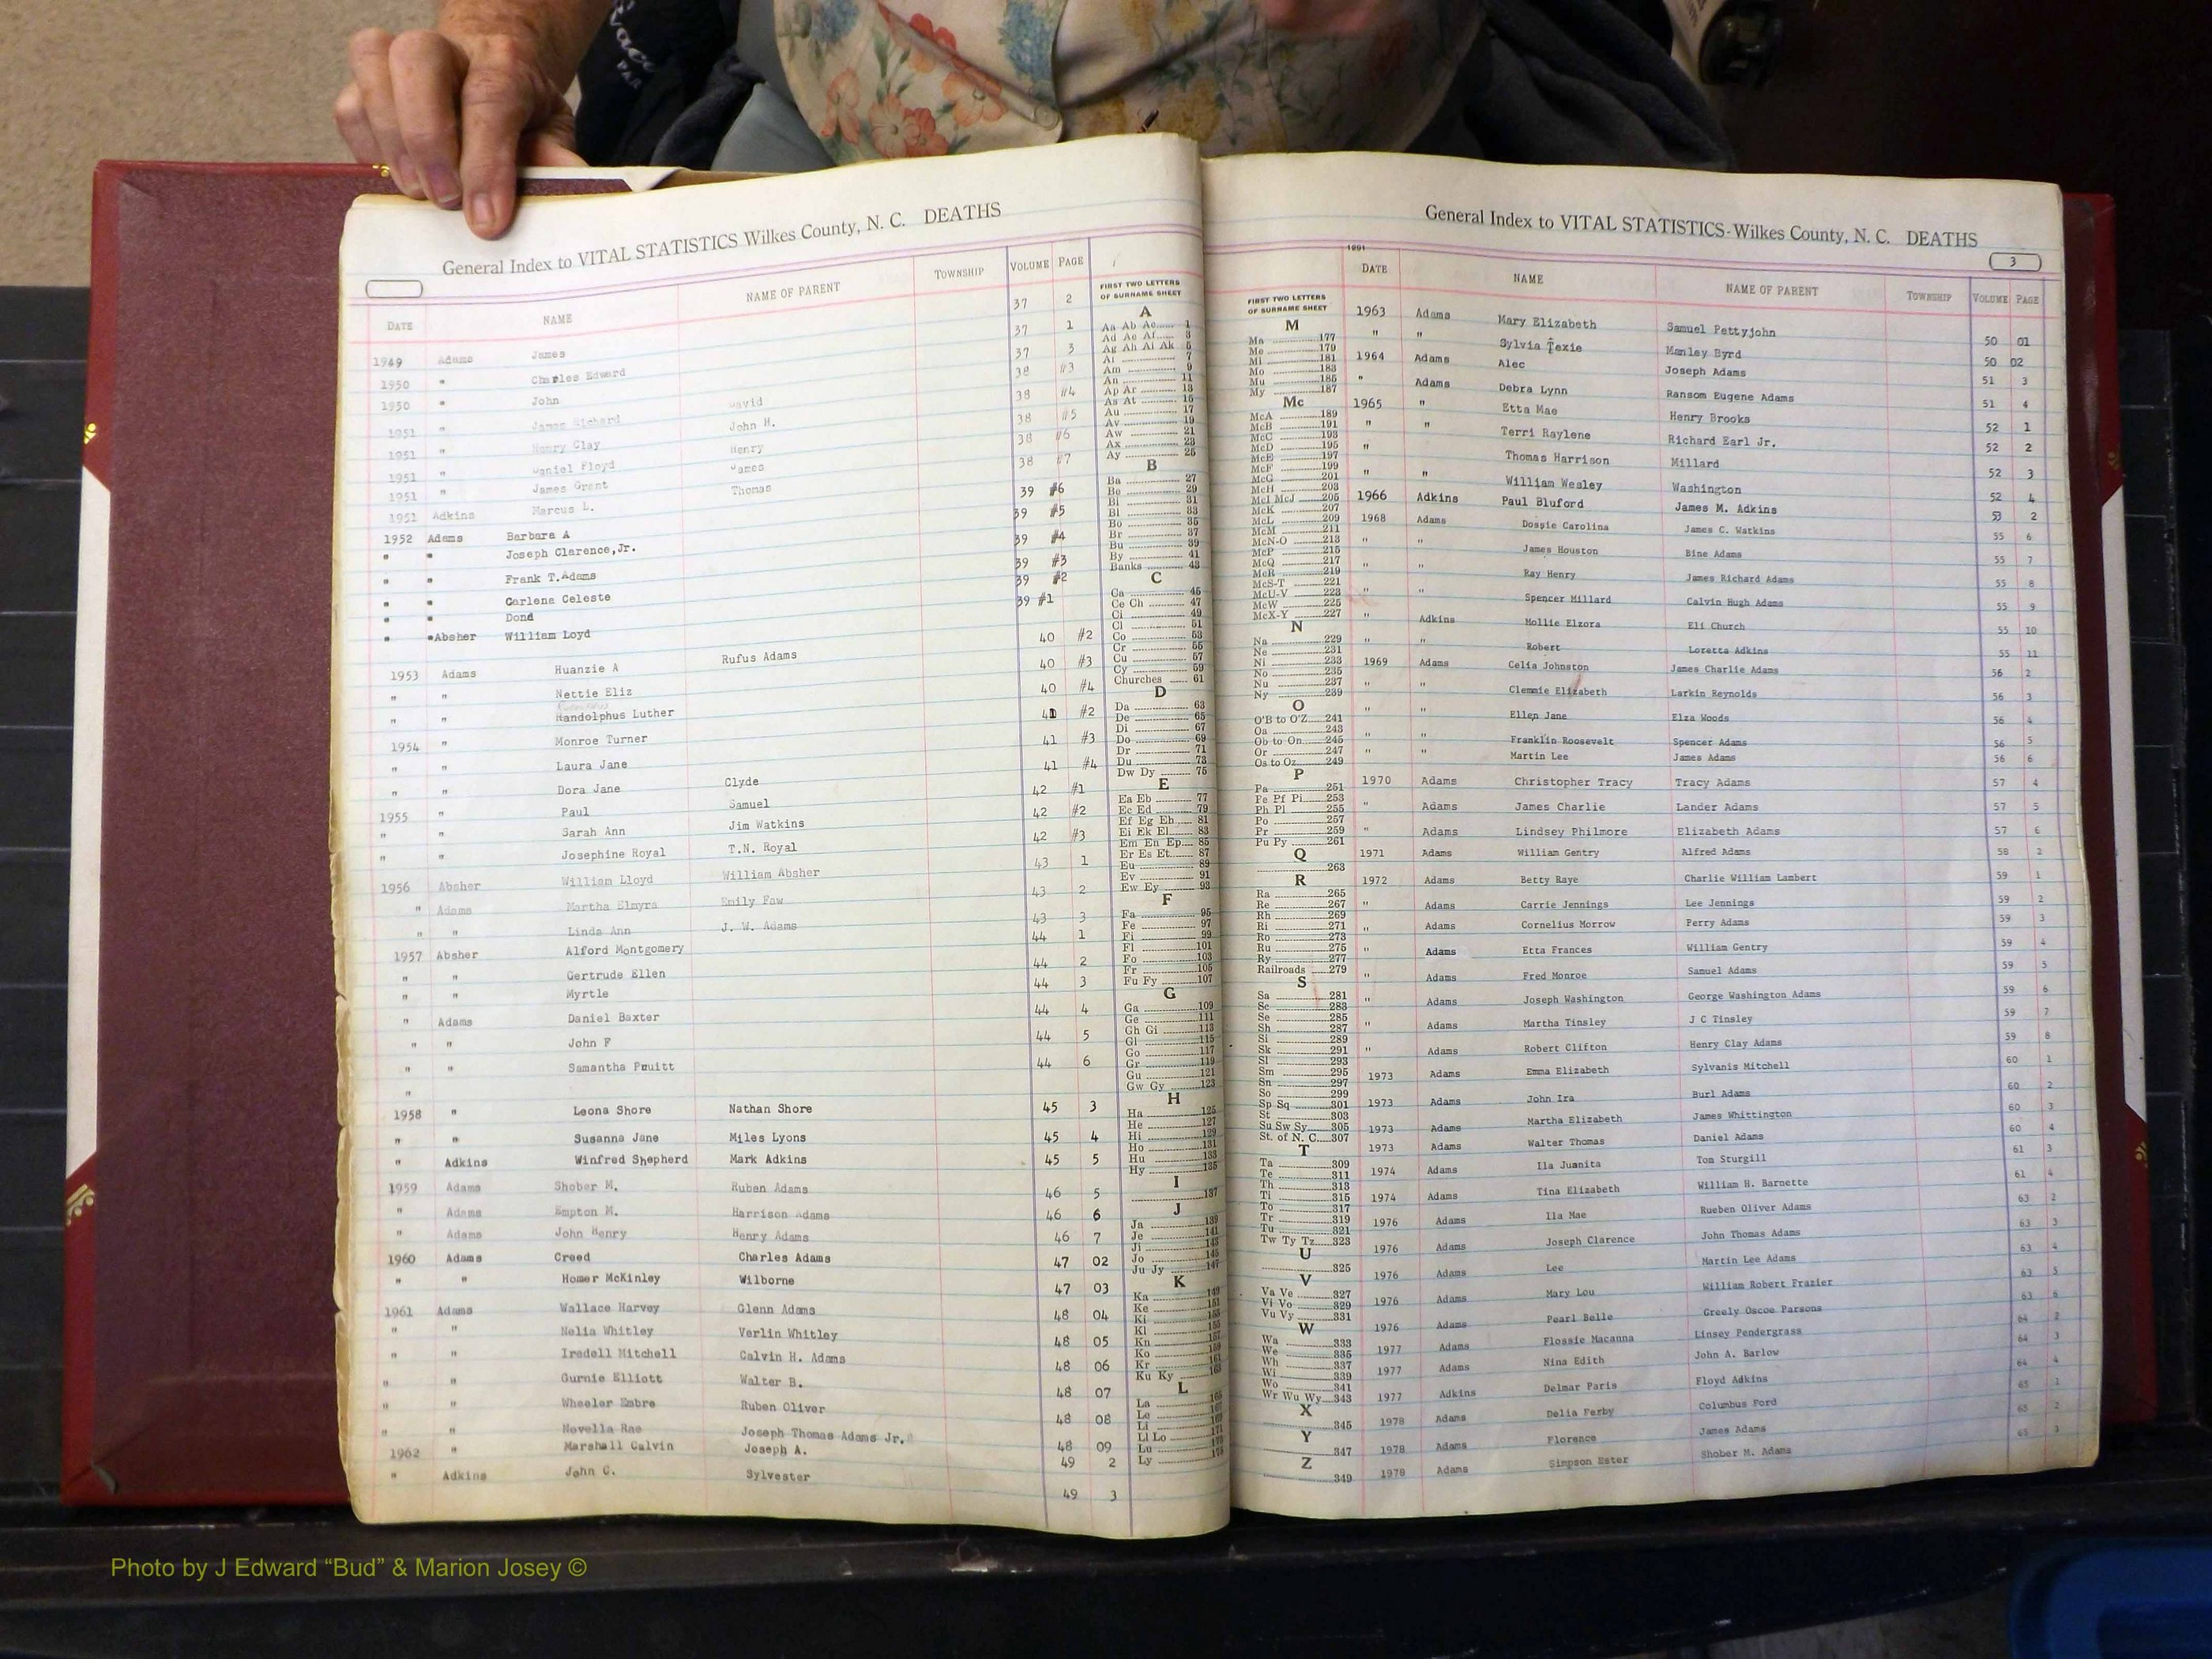 General Index to VITAL STATISTICS Wilkes County, N. C. DEATHS
DATE NAME NAME OF PARENT TOWNSHIP VOLUME PAGE
1949 Adams James 37 2
1950 " Charles Edward 37 1
1950 " John 37 3
1951 " James Richard David 38 #3
1951 " Henry Clay John H. 38 #4
1951 " Daniel Floyd Henry 38 #5
1951 " James Grant James 38 #6
1951 Adkins Marcus L. Thomas 38 #7
1952 Adams Barbara A 39 #6
" " Joseph Clarence,Jr. 39 #5
" " Frank T.Adams 39 #4
" " Garlena Celeste 39 #3
" " Dond 39 #2
" "Absher William Loyd 39 #1
1953 Adams Huanzie A Rufus Adams 40 #2
" " Nettie Eliz 40 #3
" " Randolphus Luther 40 #4
1954 " Monroe Turner 41 #2
" " Laura Jane 41 #3
" " Dora Jane 41 #4
1955 " Paul Clyde 42 #1
" " Sarah Ann Samuel 42 #2
" " Josephine Royal Jim Watkins 42 #3
T.N. Royal
1956 Absher William Lloyd William Absher 43 1
" Adams Martha Elmyra Emily Faw 43 2
" " Linda Ann J. W. Adams 43 3
1957 Absher Alford Montgomery 44 1
" " Gertrude Ellen 44 2
" " Myrtle 44 3
" Adams Daniel Baxter 44 4
" " John F 44 5
" " Samantha Pruitt 44 6
"
1958 " Leona Shore Nathan Shore 45 3
" " Susanna Jane Miles Lyons 45 4
" Adkins Winfred Shepherd Mark Adkins 45 5
1959 Adams Shober M. Ruben Adams 46 5
" Adams Empton M. Harrison Adams 46 6
" Adams John Henry Henry Adams 46 7
1960 Adams Creed Charles Adams 47 02
" " Homer McKinley Wilborne 47 03
1961 Adams Wallace Harvey Glenn Adams 48 04
" " Nelia Whitley Verlin Whitley 48 05
" " Iredell Mitchell Calvin H. Adams 48 06
" " Gurnie Elliott Walter B. 48 07
" " Wheeler Embre Ruben Oliver 48 08
" " Novella Rae Joseph Thomas Adams Jr. 48 09
1962 " Marshall Calvin Joseph A. 49 2
" Adkins John C. Sylvester 49 3
FIRST TWO LETTERS
OF SURNAME SHEET
A
Aa Ab Ac 1
Ad Ae Af 3
Ag Ah Ai Ak 5
Al 7
Am 9
An 11
Ap Ar 13
As At 15
Au 17
Av 19
Aw 21
Ax 23
Ay 25
B
Ba 27
Be 29
Bi 31
Bl 33
Bo 35
Br 37
Bu 39
By 41
Banks 43
C
Ca 45
Ce Ch 47
Ci 49
Cl 51
Co 53
Cr 55
Cu 57
Cy 59
Churches 61
D
Da 63
De 65
Di 67
Do 69
Dr 71
Du 73
Dw Dy 75
E
Ea Eb 77
Ec Ed 79
Ef Eg Eh 81
Ei Ek El 83
Em En Ep 85
Er Es Et 87
Eu 89
Ev 91
Ew Ey 93
F
Fa 95
Fe 97
Fi 99
Fl 101
Fo 103
Fr 105
Fu Fy 107
G
Ga 109
Ge 111
Gh Gi 113
Gl 115
Go 117
Gr 119
Gu 121
Gw Gy 123
H
Ha 125
He 127
Hi 129
Ho 131
Hu 133
Hy 135
I
137
J
Ja 139
Je 141
Ji 143
Jo 145
Ju Jy 147
K
Ka 149
Ke 151
Ki 153
Kl 155
Kn 157
Ko 159
Kr 161
Ku Ky 163
L
La 165
Le 167
Li 169
Ll Lo 171
Lu 173
Ly
General Index to VITAL STATISTICS-Wilkes County, N. C. DEATHS
3
1991
FIRST TWO LETTERS
OF SURNAME SHEET
M
Ma 177
Me 179
Mi 181
Mo 183
Mu 185
My 187
Mc
McA 189
McB 191
McC 193
McD 195
McE 197
McF 199
McG 201
McH 203
McI McJ 205
McK 207
McL 209
McM 211
McN-O 213
McP 215
McQ 217
McR 219
McS-T 221
McU-V 223
McW 225
McX-Y 227
N
Na 229
Ne 231
Ni 233
No 235
Nu 237
Ny 239
O
O'B to O'Z 241
Oa 243
Ob to On 245
Or 247
Os to Oz 249
P
Pa 251
Pe Pf Pi 253
Ph Pl 255
Po 257
Pr 259
Pu Py 261
Q
263
R
Ra 265
Re 267
Rh 269
Ri 271
Ro 273
Ru 275
Ry 277
Railroads 279
S
Sa 281
Sc 283
Se 285
Sh 287
Si 289
Sk 291
Sl 293
Sm 295
Sn 297
So 299
Sp Sq 301
St 303
Su Sw Sy 305
St. of N. C. 307
T
Ta 309
Te 311
Th 313
Ti 315
To 317
Tr 319
Tu 321
Tw Ty Tz 323
U
325
V
Va Ve 327
Vi Vo 329
Vu Vy 331
W
Wa 333
We 335
Wh 337
Wi 339
Wo 341
Wr Wu Wy 343
X
345
Y
347
Z
349
DATE NAME NAME OF PARENT TOWNSHIP VOLUME PAGE
1963 Adams Mary Elizabeth Samuel Pettyjohn 50 01
" " Sylvia Texie Manley Byrd 50 02
1964 Adams Alec Joseph Adams 51 3
" Adams Debra Lynn Ransom Eugene Adams 51 4
1965 " Etta Mae Henry Brooks 52 1
" " Terri Raylene Richard Earl Jr. 52 2
" Thomas Harrison Millard 52 3
" " William Wesley Washington 52 4
1966 Adkins Paul Bluford James M. Adkins 53 2
1968 Adams Dossie Carolina James C. Watkins 55 6
" " James Houston Bine Adams 55 7
" " Ray Henry James Richard Adams 55 8
" " Spencer Millard Calvin Hugh Adams 55 9
" Adkins Mollie Elzora Eli Church 55 10
" " Robert Loretta Adkins 55 11
1969 Adams Celia Johnston James Charlie Adams 56 2
" " Clemmie Elizabeth Larkin Reynolds 56 3
" " Ellen Jane Elza Woods 56 4
" " Franklin Roosevelt Spencer Adams 56 5
" " Martin Lee James Adams 56 6
1970 Adams Christopher Tracy Tracy Adams 57 4
" Adams James Charlie Lander Adams 57 5
" Adams Lindsey Philmore Elizabeth Adams 57 6
1971 Adams William Gentry Alfred Adams 58 2
1972 Adams Betty Raye Charlie William Lambert 59 1
" Adams Carrie Jennings Lee Jennings 59 2
" Adams Cornelius Morrow Perry Adams 59 3
" Adams Etta Frances William Gentry 59 4
" Adams Fred Monroe Samuel Adams 59 5
" Adams Joseph Washington George Washington Adams 59 6
" Adams Martha Tinsley J C Tinsley 59 7
" Adams Robert Clifton Henry Clay Adams 59 8
1973 Adams Emma Elizabeth Sylvanis Mitchell 60 1
1973 Adams John Ira Burl Adams 60 2
1973 Adams Martha Elizabeth James Whittington 60 3
1973 Adams Walter Thomas Daniel Adams 60 4
1974 Adams Ila Juanita Tom Sturgill 61 3
1974 Adams Tina Elizabeth William H. Barnette 61 4
1976 Adams Ila Mae Rueben Oliver Adams 63 2
1976 Adams Joseph Clarence John Thomas Adams 63 3
1976 Adams Lee Martin Lee Adams 63 4
1976 Adams Mary Lou William Robert Frazier 63 5
1976 Adams Pearl Belle Greely Oscoe Parsons 63 6
1977 Adams Flossie Macanna Linsey Pendergrass 64 2
1977 Adams Nina Edith John A. Barlow 64 3
1977 Adkins Delmar Paris Floyd Adkins 64 4
1978 Adams Delia Ferby Columbus Ford 65 1
1978 Adams Florence James Adams 65 2
1978 Adams Simpson Ester Shober M. Adams 65 3
Photo by J Edward “Bud” & Marion Josey ©